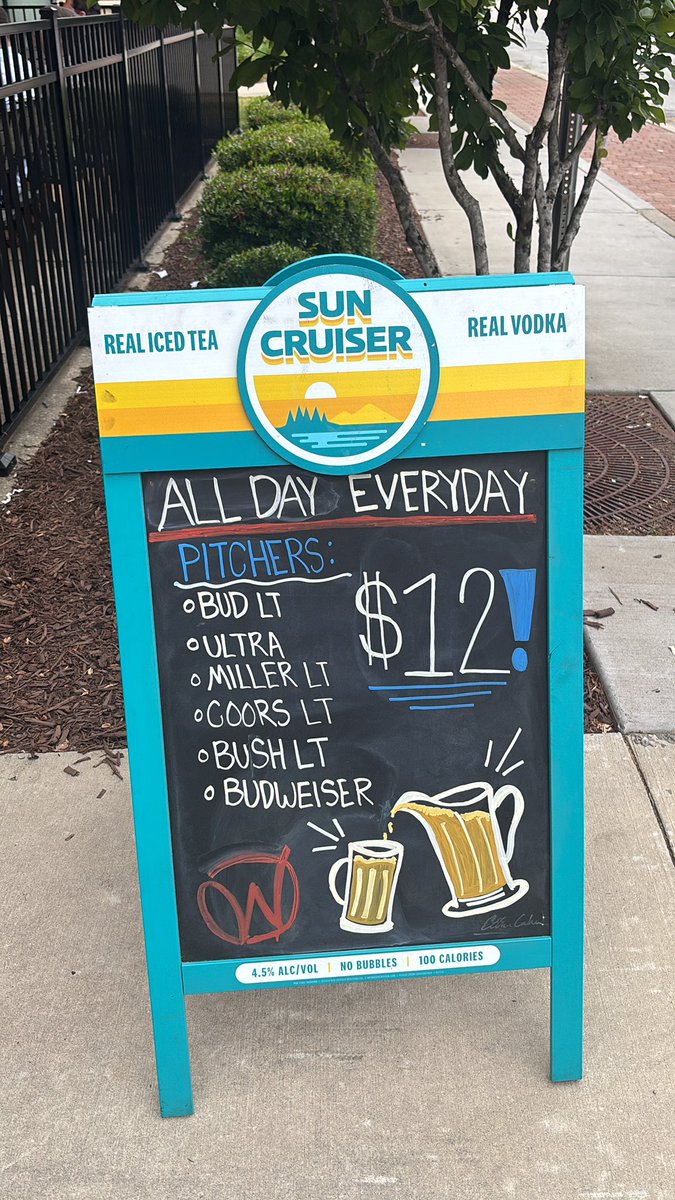 REAL ICED TEA
SUN
CRUISER
REAL VODKA
ALL DAY EVERYDAY
PITCHERS:
$12!
BUD LT
ULTRA
MILLER LT
COORS LT
BUSH LT
BUDWEISER
W
4.5% ALC/VOL | NO BUBBLES | 100 CALORIES